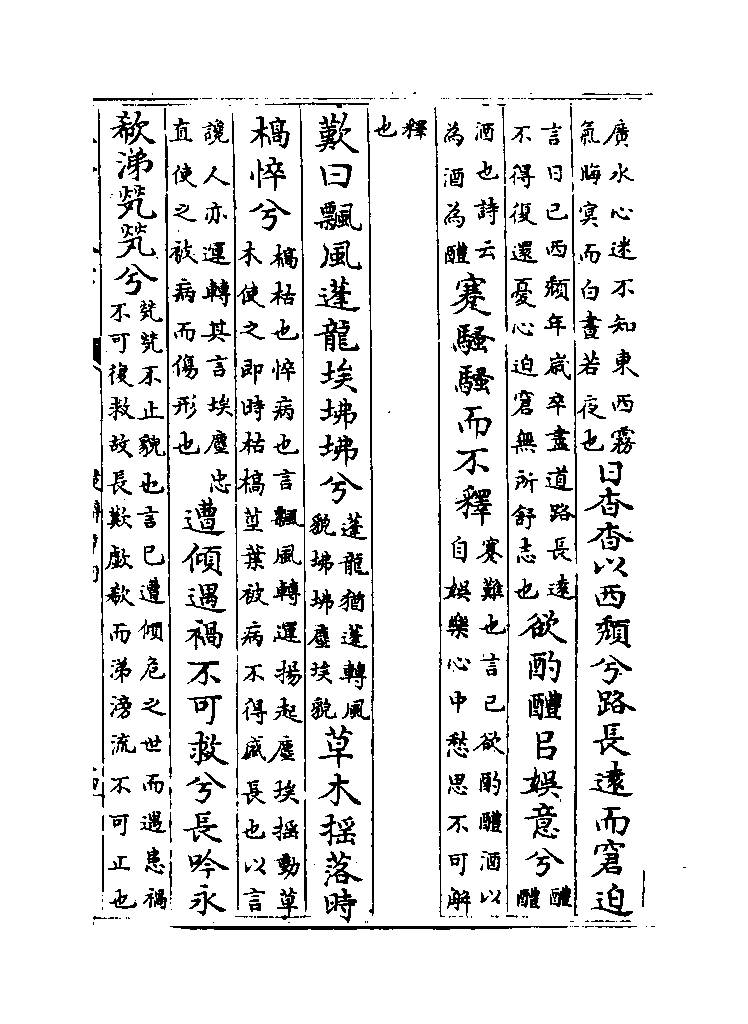 廣水心迷不知東西霧
氣晦冥而白晝若夜也
日杳杳以西頹兮路長遠而窘迫
言日已西頹年歲卒盡道路長遠
不得復還憂心迫窘無所舒志也
欲酌醴㠯娛意兮
醴
醴
酒也詩云
為酒為醴
蹇騷騷而不釋
蹇難也言已欲酌醴酒以
自娛樂心中愁思不可解
釋
也
歎曰飄風蓬龍埃坲坲兮
蓬龍猶蓬轉風
貌坲坲塵埃貌
草木搖落時
槁悴兮
槁枯也悴病也言飄風轉運揚起塵埃搖動草
木使之即時枯槁莖葉被病不得盛長也以言
讒人亦運轉其言埃塵忠
直使之被病而傷形也
遭傾遇禍不可救兮長吟永
欷涕究究兮
究究不止貌也言已遭傾危之世而遇患禍
不可復救故長歎歔欷而涕滂流不可止也